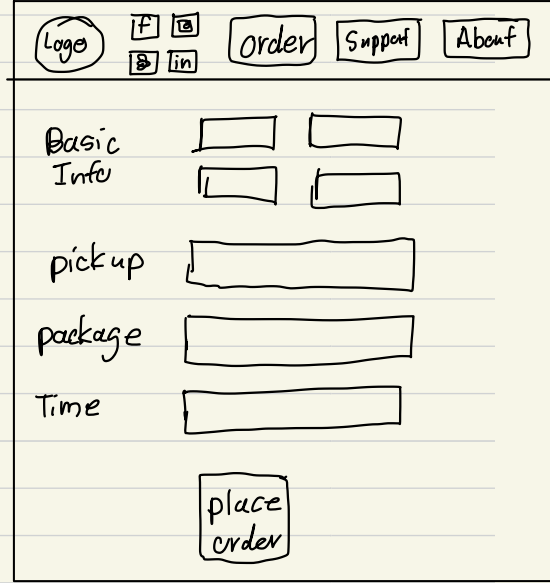 Logo
f
in
order
Support
About
Basic
Info
pickup
package
Time
place
order